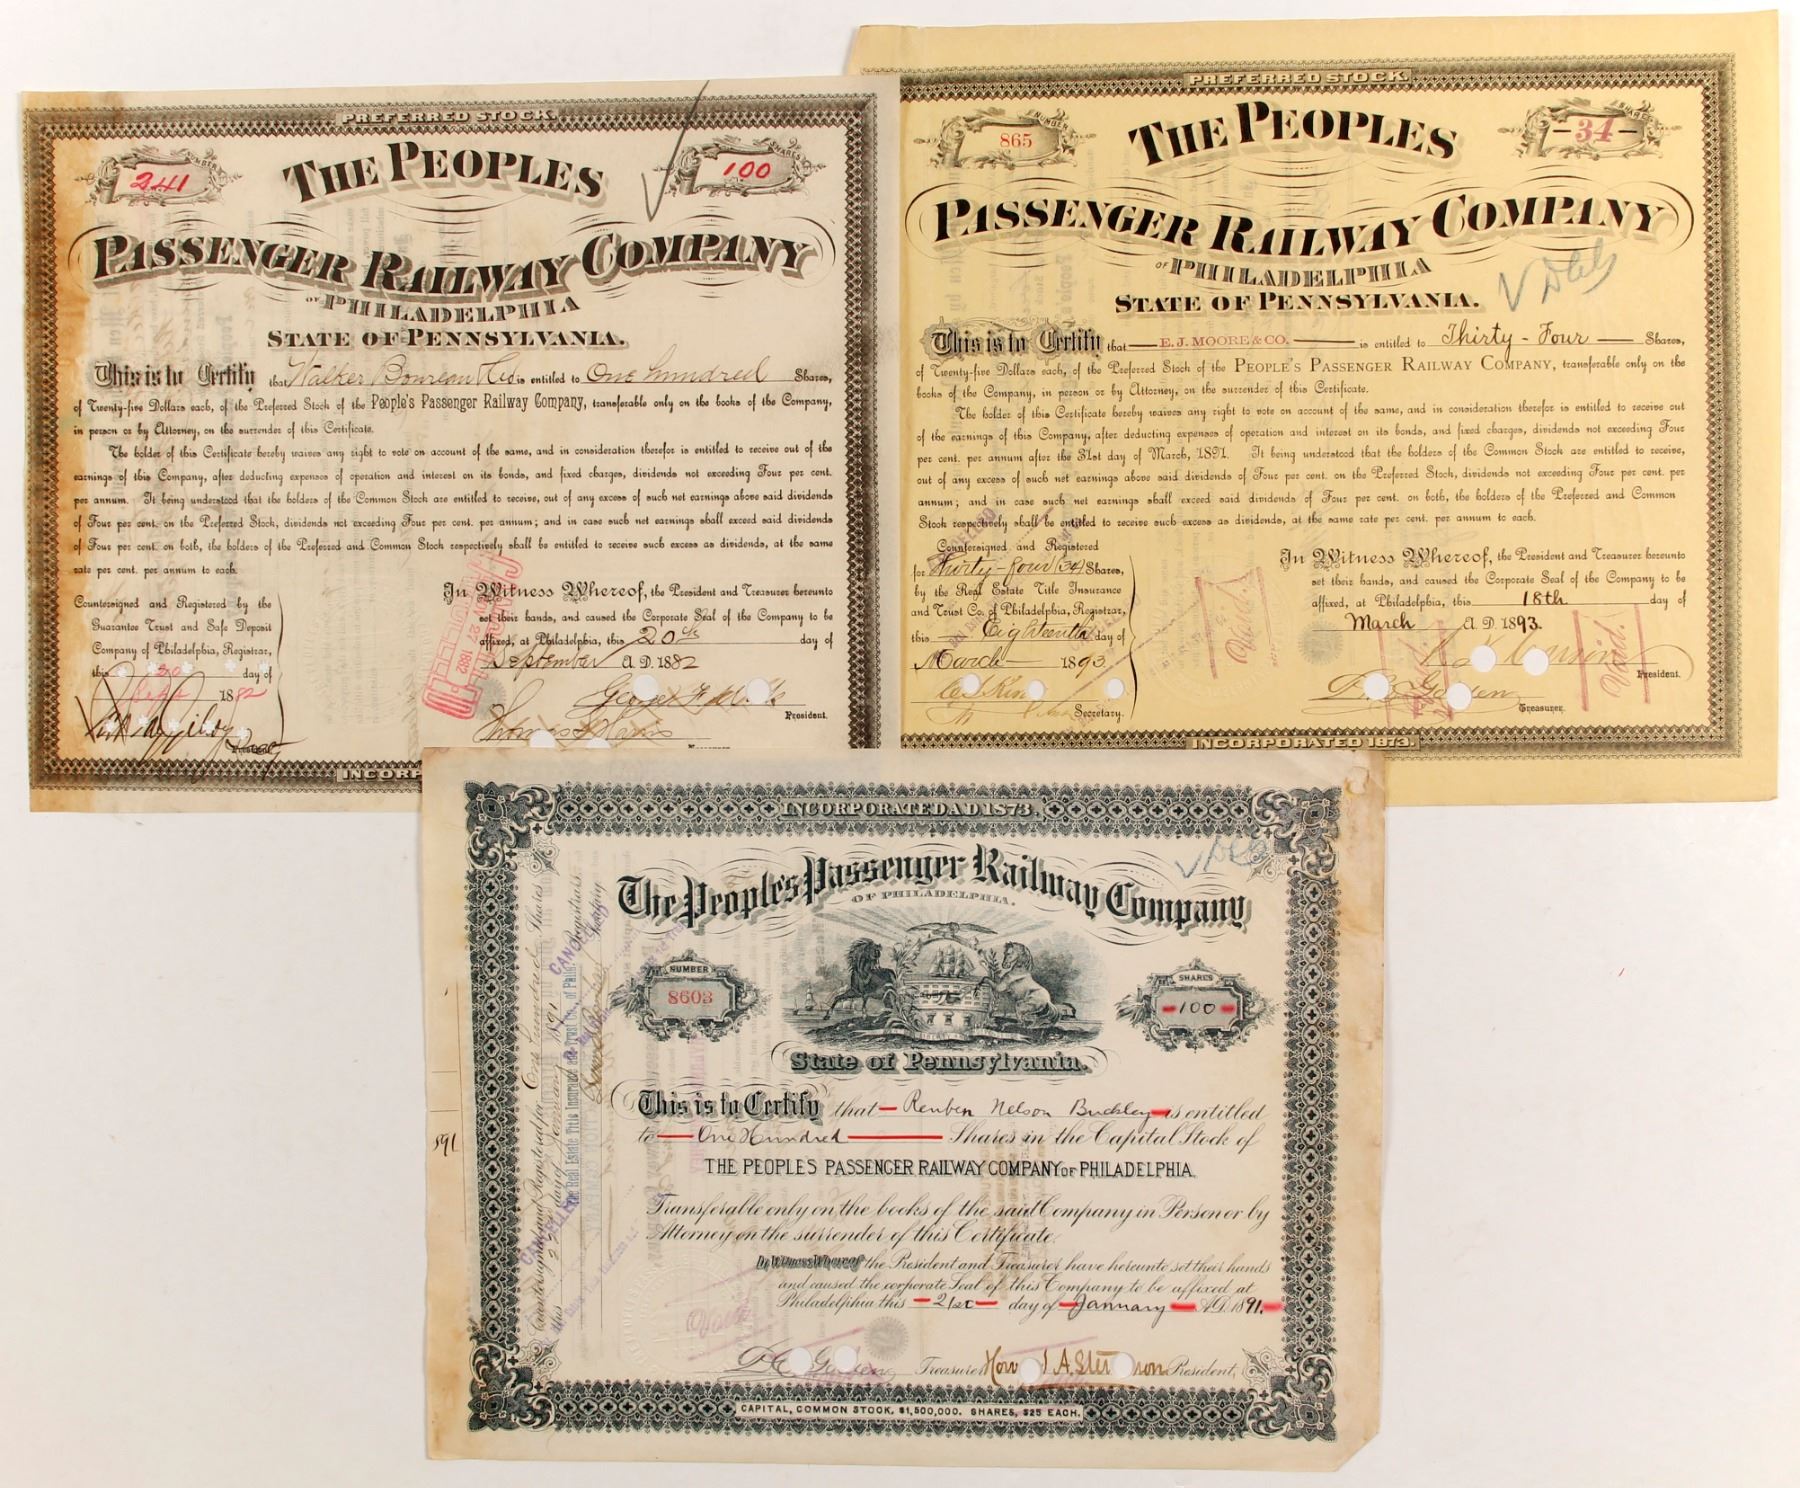 PREFERRED STOCK.
NUMBER
241
SHARES
100
THE PEOPLES
PASSENGER RAILWAY COMPANY
OF PHILADELPHIA
STATE OF PENNSYLVANIA.
This is to Certify that Walker is entitled to One hundred Shares,
of Twenty-five Dollars each, of the Preferred Stock of the People's Passenger Railway Company, transferable only on the books of the Company,
in person or by Attorney, on the surrender of this Certificate.
The holder of this Certificate hereby waives any right to vote on account of the same, and in consideration therefor is entitled to receive out of the
earnings of this Company, after deducting expenses of operation and interest on its bonds, and fixed charges, dividends not exceeding Four per cent.
per annum. It being understood that the holders of the Common Stock are entitled to receive, out of any excess of such net earnings above said dividends
of Four per cent. on the Preferred Stock, dividends not exceeding Four per cent. per annum; and in case such net earnings shall exceed said dividends
of Four per cent. on both, the holders of the Preferred and Common Stock respectively shall be entitled to receive such excess as dividends, at the same
rate per cent. per annum to each.
Countersigned and Registered by the
Guarantee Trust and Safe Deposit
Company of Philadelphia, Registrar,
this 20 day of
Sept 1882
In Witness Whereof, the President and Treasurer hereunto
set their hands, and caused the Corporate Seal of the Company to be
affixed, at Philadelphia, this 20th day of
September A.D. 1882
President.
NOV 27 1882
PREFERRED STOCK.
NUMBER
865
SHARES
34
THE PEOPLES
PASSENGER RAILWAY COMPANY
OF PHILADELPHIA
STATE OF PENNSYLVANIA.
This is to Certify that E. J. MOORE & CO. is entitled to Thirty-Four Shares,
of Twenty-five Dollars each, of the Preferred Stock of the PEOPLE'S PASSENGER RAILWAY COMPANY, transferable only on the
books of the Company, in person or by Attorney, on the surrender of this Certificate.
The holder of this Certificate hereby waives any right to vote on account of the same, and in consideration therefor is entitled to receive out
of the earnings of this Company, after deducting expenses of operation and interest on its bonds, and fixed charges, dividends not exceeding Four
per cent. per annum after the 31st day of March, 1891. It being understood that the holders of the Common Stock are entitled to receive,
out of any excess of such net earnings above said dividends of Four per cent. on the Preferred Stock, dividends not exceeding Four per cent. per
annum; and in case such net earnings shall exceed said dividends of Four per cent. on both, the holders of the Preferred and Common
Stock respectively shall be entitled to receive such excess as dividends, at the same rate per cent. per annum to each.
Countersigned and Registered
for Thirty-four (34) Shares,
by the Real Estate Title Insurance
and Trust Co. of Philadelphia, Registrar,
this Eighteenth day of
March 1893.
Secretary.
In Witness Whereof, the President and Treasurer hereunto
set their hands, and caused the Corporate Seal of the Company to be
affixed, at Philadelphia, this 18th day of
March A.D. 1893.
President.
Treasurer.
Void.
INCORPORATED 1873.
INCORPORATED A.D. 1873.
The People's Passenger Railway Company
OF PHILADELPHIA.
NUMBER
8603
SHARES
100
State of Pennsylvania.
This is to Certify that Reuben Nelson Buckley is entitled
to One Hundred Shares in the Capital Stock of
THE PEOPLES PASSENGER RAILWAY COMPANY OF PHILADELPHIA.
Transferable only on the books of the said Company in Person or by
Attorney on the surrender of this Certificate.
In Witness Whereof the President and Treasurer have hereunto set their hands
and caused the corporate Seal of this Company to be affixed at
Philadelphia this 21st day of January A.D. 1891.
Treasurer
President,
Void
CAPITAL, COMMON STOCK, $1,500,000. SHARES, $25 EACH.
Countersigned and Registered for One hundred Shares
this 22d day of January 1891
The Real Estate Title Insurance and Trust Co. of Phila. Registrars
CANCELLED